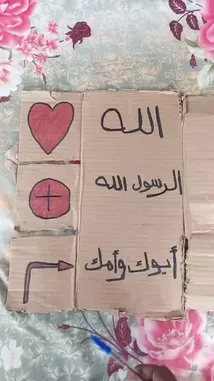 الله
الرسول الله
أبوك وأمك